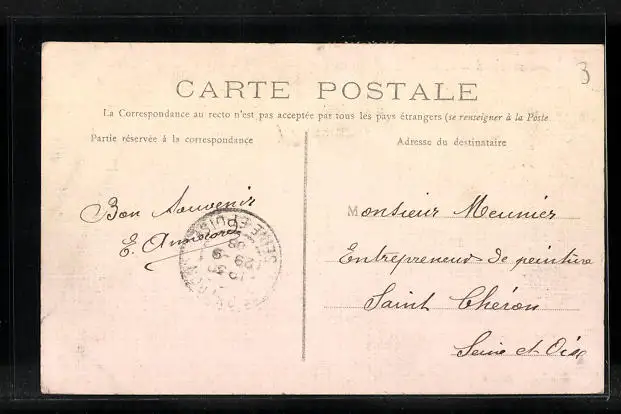 3
CARTE POSTALE
La Correspondance au recto n'est pas acceptée par tous les pays étrangers (se renseigner à la Poste
Partie réservée à la correspondance
Adresse du destinataire
Bon Souvenir
E.
Monsieur Meunier
Entrepreneur de peinture
Saint Chéron
Seine et Oise
SEINE
29 -9
08